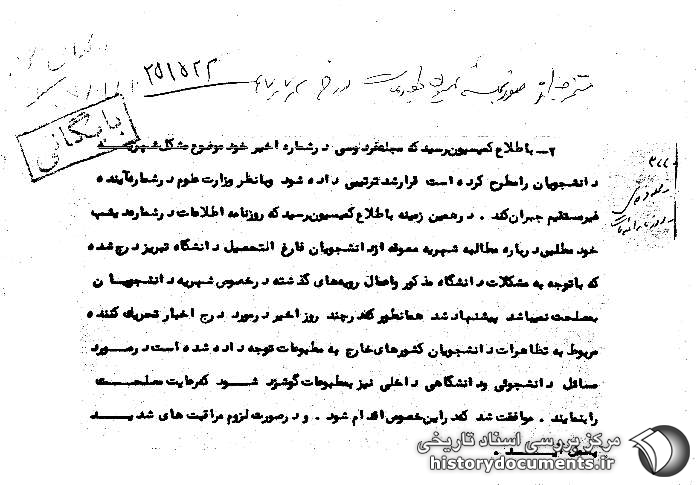 مستخرجه از صورتجلسه کمیسیون مطبوعات مورخ
۲۵۱۵۲۳
بایگانی
۲ــ باطلاع کمیسیون رسید که مجله فردوسی در شماره اخیر خود موضوع مشکل شهریه
دانشجویان را مطرح کرده است قرار شد ترتیبی داده شود و بنا نظر وزارت علوم در شماره آینده
غیرمستقیم جبران کند . در همین زمینه باطلاع کمیسیون رسید که روزنامه اطلاعات در شماره دیشب
خود مطلبی درباره مطالبه شهریه معوقه از دانشجویان فارغ التحصیل دانشگاه تبریز درج شده
که با توجه به مشکلات دانشگاه مذکور واعمال رویه‌های گذشته در خصوص شهریه دانشجویان
بمصلحت نمیباشد پیشنهاد شد همانطور که در چند روز اخیر در مورد درج اخبار تحریک کننده
مربوط به تظاهرات دانشجویان کشورهای خارج به مطبوعات توجه داده شده است در مورد
مسائل دانشجوئی ودانشگاهی داخلی نیز بمطبوعات گوشزد شود که رعایت مصلحت
را بنمایند . موافقت شد که در این خصوص اقدام شود . و در صورت لزوم مراقبت های شدید
مرکز بررسی اسناد تاریخی
historydocuments.ir